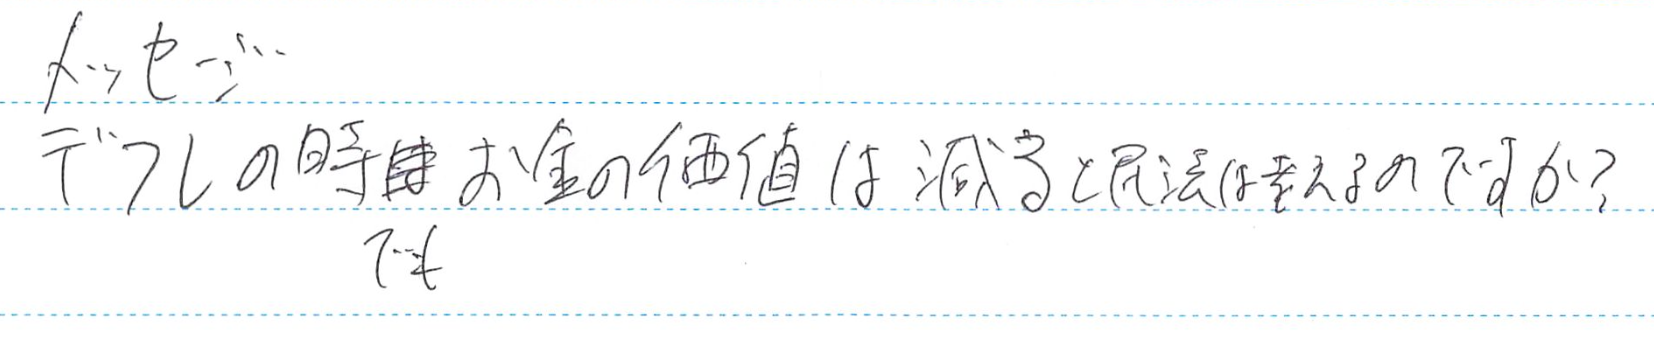 メッセージ
デフレの時お金の価値は減ると民法は考えるのですか?
でも